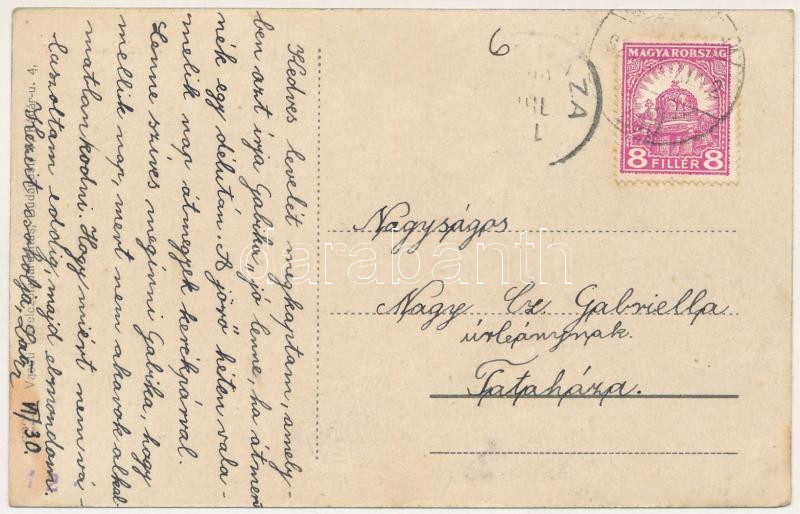 Kedves levelét megkaptam, amely-
ben azt írja Gabika, jó lenne, ha átmen-
nék egy délután. A jövő héten vala-
melik nap átmegyek kerékpárral.
Lenne szíves megírni Gabika, hogy
mellik nap, mert nem akarok alkal-
matlankodni. Hogy miért nem vá-
laszoltam eddig, majd elmondom.
csókolja, Laci
VI/30.
6
MAGYARORSZÁG
8 FILLÉR 8
ZA
Nagyságos
Nagy Cz. Gabriella
úrleánynak.
Tataháza.
darabanth